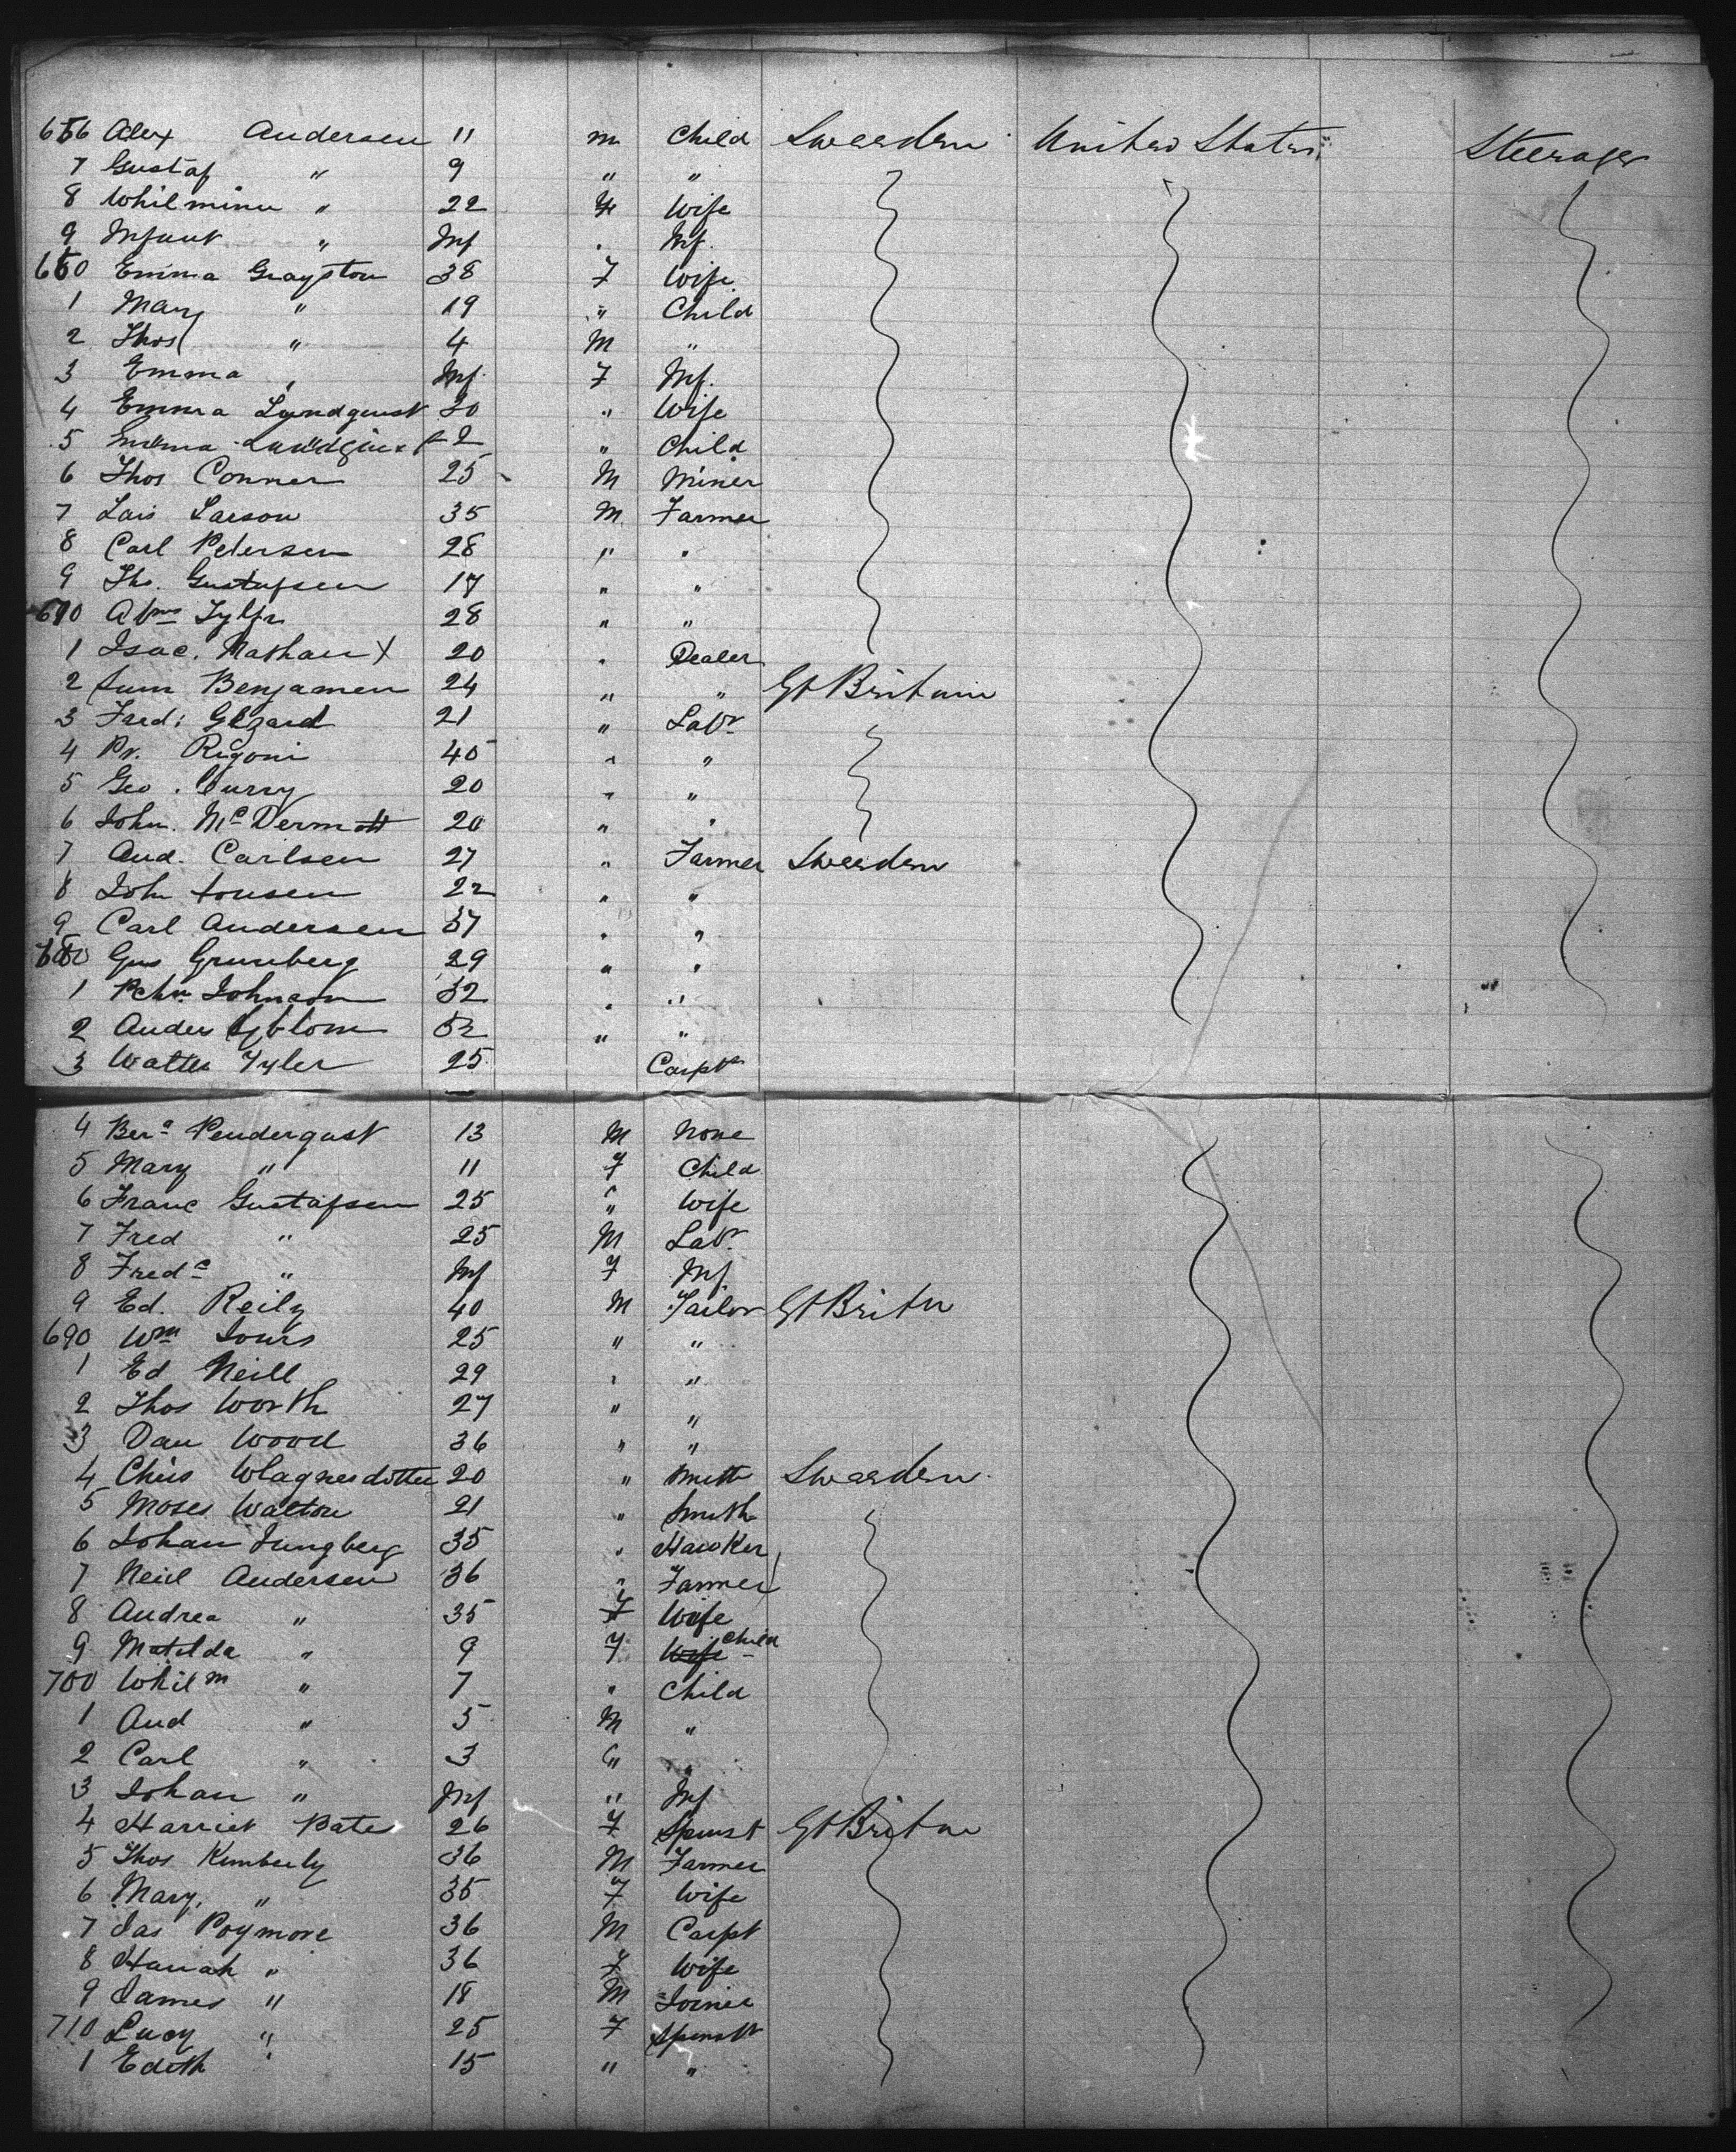 656 Alex Andersen 11 m Child Sweeden United States Steerage
7 Gustaf " 9 " "
8 Whilmina " 22 F Wife
9 Infant " Inf " Inf.
660 Emma Grayston 38 F Wife
1 Mary " 19 " Child
2 Thos " 4 M "
3 Emma " Inf F Inf.
4 Emma Lyndquist 30 " Wife
5 2 " Child
6 Thos Conner 25 M Miner
7 Lars Larson 35 M Farmer
8 Carl Petersen 28 " "
9 Gustafsen 17 " "
670 28 " "
1 Isac. Nathan X 20 " Dealer
2 Benjamen 24 " " Gt Britain
3 Fred: 21 " Labr
4 Rigoni 45 " "
5 Geo. Curry 20 " "
6 John. McDermott 20 " "
7 And. Carlsen 27 " Farmer Sweeden
8 John 22 " "
9 Carl Andersen 37 " "
680 Gus Grunberg 29 " "
1 Petr Johnson 32 " "
2 Anders 52 " "
3 Walter Tyler 25 Carptr
4 Bera Pendergast 13 M None
5 Mary " 11 F Child
6 Franc Gustafsen 25 " Wife
7 Fred " 25 M Labr
8 Fredc " Inf F Inf.
9 Ed. Reily 40 M Tailor Gt Britn
690 Wm Jones 25 " "
1 Ed Neill 29 " "
2 Thos Worth 27 " "
3 Dan Wood 36 " "
4 Chris 20 " Smith Sweeden
5 Moses Walton 21 " Smith
6 Johan Jungberg 35 " Hawker
7 Neil Andersen 36 " Farmer
8 Andrea " 35 F Wife
9 Matilda " 9 F Wife Child
700 Whilm " 7 " Child
1 And " 5 M "
2 Carl " 3 " "
3 Johan " Inf " Inf
4 Harriet Pate 26 F Spinst Gt Britn
5 Thos Kimberly 36 M Farmer
6 Mary, " 35 F Wife
7 Jas Poymore 36 M Carpt
8 Hanah " 36 F Wife
9 James " 18 M Joiner
710 Lucy " 25 F Spinstr
1 Edith " 15 " "